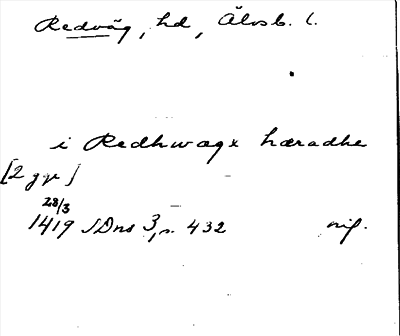 Redväg, hd, Älvsb. l.
i Redhwægx hæradhe
[2 ggr]
28/3
1419 SDns 3, s. 432